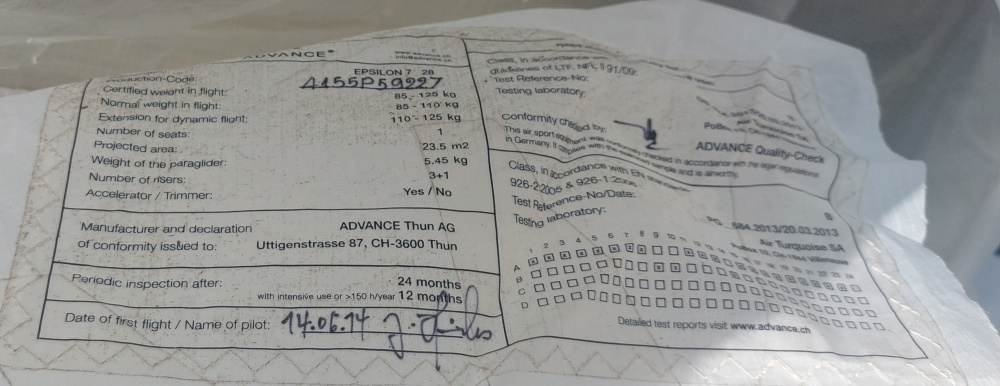 ADVANCE®
www.advance.ch
info@advance.ch
EPSILON 7 28
Production-Code: 4155P59227
Certified weight in flight: 85 - 125 kg
Normal weight in flight: 85 - 110 kg
Extension for dynamic flight: 110 - 125 kg
Number of seats: 1
Projected area: 23.5 m2
Weight of the paraglider: 5.45 kg
Number of risers: 3+1
Accelerator / Trimmer: Yes / No
Manufacturer and declaration ADVANCE Thun AG
of conformity issued to: Uttigenstrasse 87, CH-3600 Thun
Periodic inspection after: 24 months
with intensive use or >150 h/year 12 months
Date of first flight / Name of pilot: 14.06.14
Class, in accordance with
guidelines of LTF, NFL II 91/09:
Test Reference-No:
Testing laboratory:
Conformity checked by:
ADVANCE Quality-Check
This air sport equipment was conformity checked in accordance with the legal regulations
in Germany. It complies with the sample and is airworthy.
Class, in accordance with EN
926-2:2005 & 926-1: B
Test Reference-No/Date: PG_684.2013/20.03.2013
Testing laboratory: Air Turquoise SA
1 2 3 4 5 6 7 8 9 10
A
B
C
D
Detailed test reports visit www.advance.ch